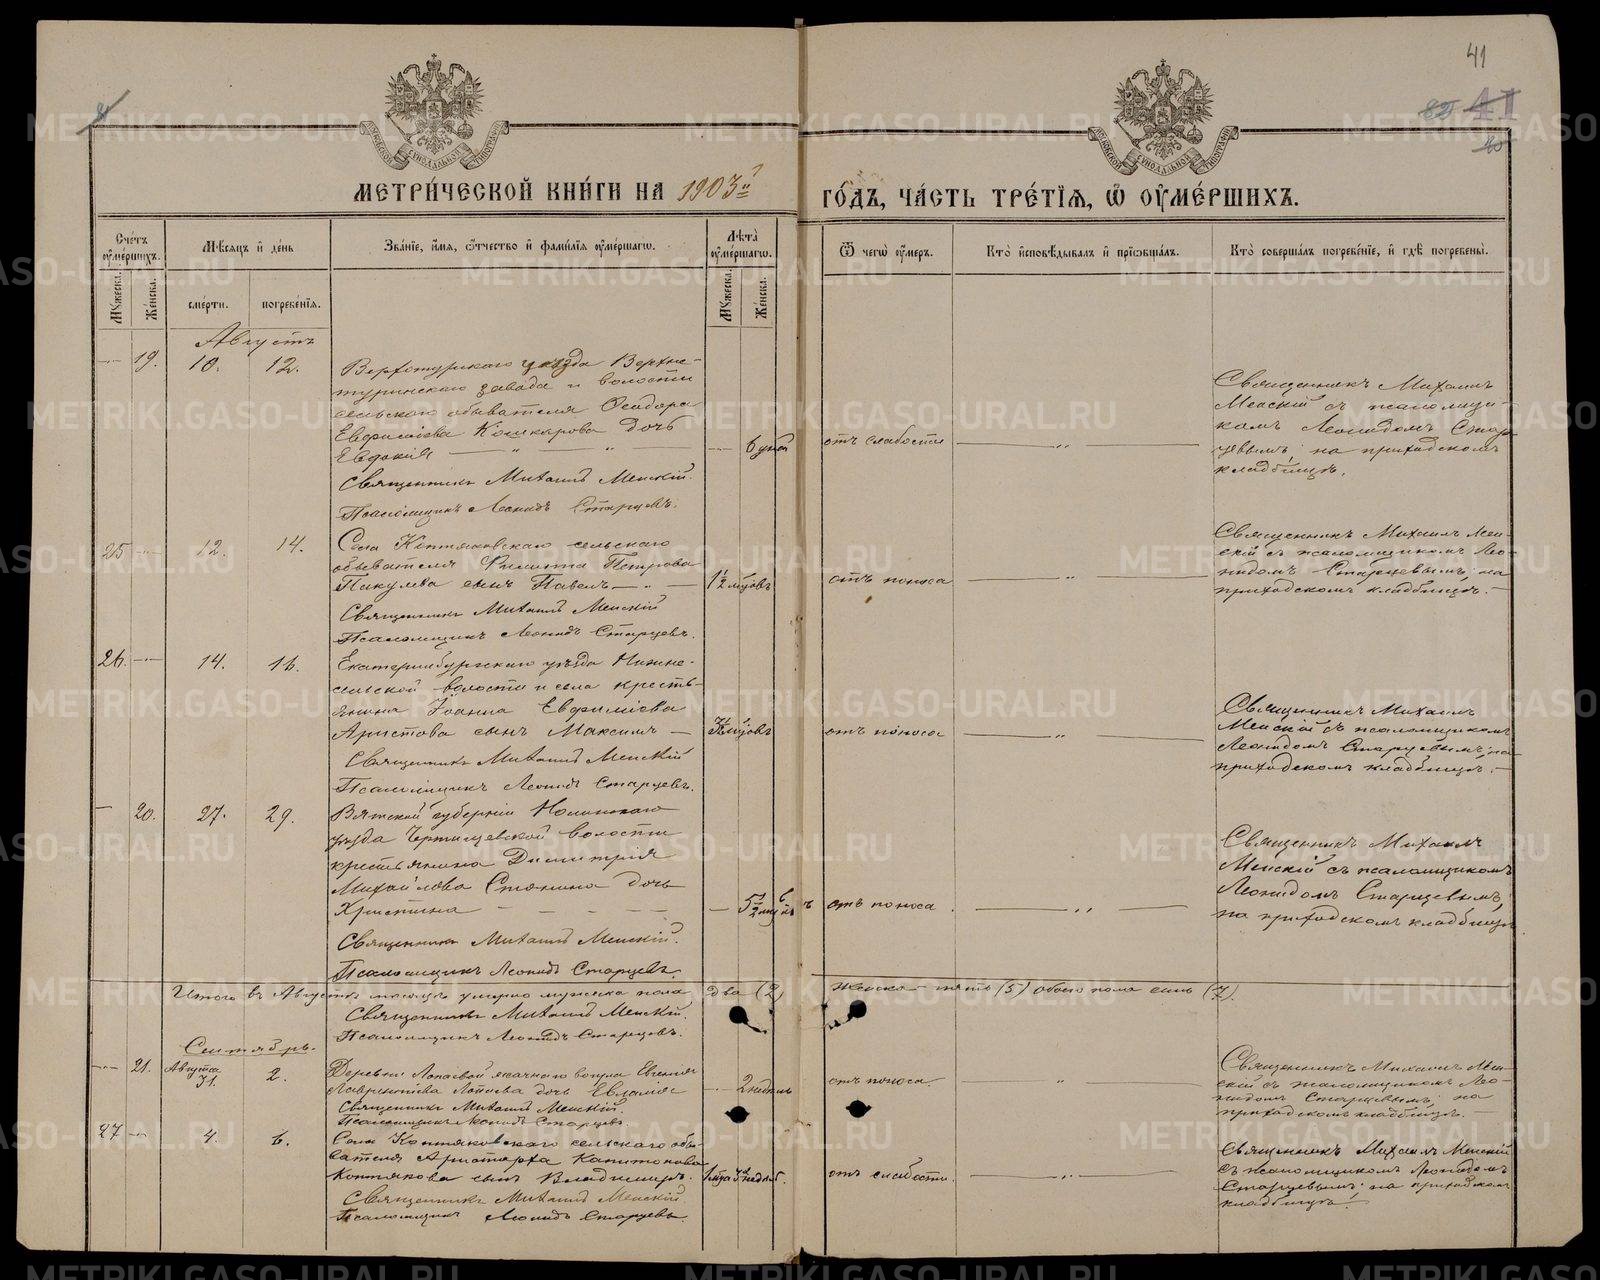 41
82 41
40
МОСКОВСКОЙ СѴНОДАЛЬНОЙ ТИПОГРАФІИ
МОСКОВСКОЙ СѴНОДАЛЬНОЙ ТИПОГРАФІИ
МЕТРИ́ЧЕСКОЙ КНИ́ГИ НА 1903й
ГО́ДЪ, ЧА́СТЬ ТРЕ́ТІѦ, Ѿ ОУМЕ́РШИХЪ.
Сче́тъ оуме́ршихъ.
Мѣ́сяцъ и҆ де́нь
Зва́ніе, и҆́мя, ѻ҆́тчество и҆ фами́лія оуме́ршагѡ.
Лѣ́та оуме́ршагѡ.
Ѿ чегѡ̀ оу҆́меръ.
Кто̀ и҆сповѣ́дывалъ и҆ прїѡбща́лъ.
Кто̀ соверша́лъ погребе́ніе, и҆ гдѣ̀ погребены̀.
Му́жеска.
Же́нска.
сме́рти.
погребе́нія.
Му́жеска.
Же́нска.
Августъ
19. 10. 12.
Верхотурскаго уѣзда Верхне-
туринскаго завода и волости
сельскаго обывателя Ѳеодора
Евфиміева Кошкарова дочь
Евдокія
Священникъ Михаилъ Менскій.
Псаломщикъ Леонидъ Старцевъ.
отъ слабости
Священникъ Михаилъ
Менскій съ псаломщи-
комъ Леонидомъ Стар-
цевымъ, на приходскомъ
кладбищѣ.
25 12. 14.
Села Коптяковскаго сельскаго
обывателя Филиппа Петрова
Пикулева сынъ Павелъ
Священникъ Михаилъ Менскій
Псаломщикъ Леонидъ Старцевъ.
1½ мѣсяцовъ
отъ поноса
Священникъ Михаилъ Мен-
скій съ псаломщикомъ Лео-
нидомъ Старцевымъ, на
приходскомъ кладбищѣ.
26. 14. 16.
Екатеринбургскаго уѣзда Нижне-
сельской волости и села кресть-
янина Іоанна Евфиміева
Аристова сынъ Максимъ
Священникъ Михаилъ Менскій
Псаломщикъ Леонидъ Старцевъ.
отъ поноса
Священникъ Михаилъ
Менскій съ псаломщикомъ
Леонидомъ Старцевымъ, на
приходскомъ кладбищѣ.
20. 27. 29.
Вятской губерніи Нолинскаго
уѣзда волости
крестьянина Димитрія
Михайлова Стянина дочь
Христина
Священникъ Михаилъ Менскій.
Псаломщикъ Леонидъ Старцевъ.
отъ поноса
Священникъ Михаилъ
Менскій съ псаломщикомъ
Леонидомъ Старцевымъ,
на приходскомъ кладбищѣ
Итого въ Августѣ мѣсяцѣ умерло мужеска пола два (2) Женска пять (5) обоего пола семь (7).
Священникъ Михаилъ Менскій.
Псаломщикъ Леонидъ Старцевъ.
Сентябрь.
21. Августа 31. 2.
Деревни Лопаевой Евгенія
Лаврентіева Лопаева дочь Евлампія
Священникъ Михаилъ Менскій.
Псаломщикъ Леонидъ Старцевъ.
2 недѣль
отъ поноса
Священникъ Михаилъ Мен-
скій съ псаломщикомъ Лео-
нидомъ Старцевымъ, на
приходскомъ кладбищѣ.
27 4. 6.
Села Коптяковскаго сельскаго обы-
вателя Аристарха Капитонова
Коптякова сынъ Владимиръ.
Священникъ Михаилъ Менскій
Псаломщикъ Леонидъ Старцевъ.
отъ слабости.
Священникъ Михаилъ Менскій
съ псаломщикомъ Леонидомъ
Старцевымъ на приходском
кладбищѣ.
METRIKI.GASO-URAL.RU